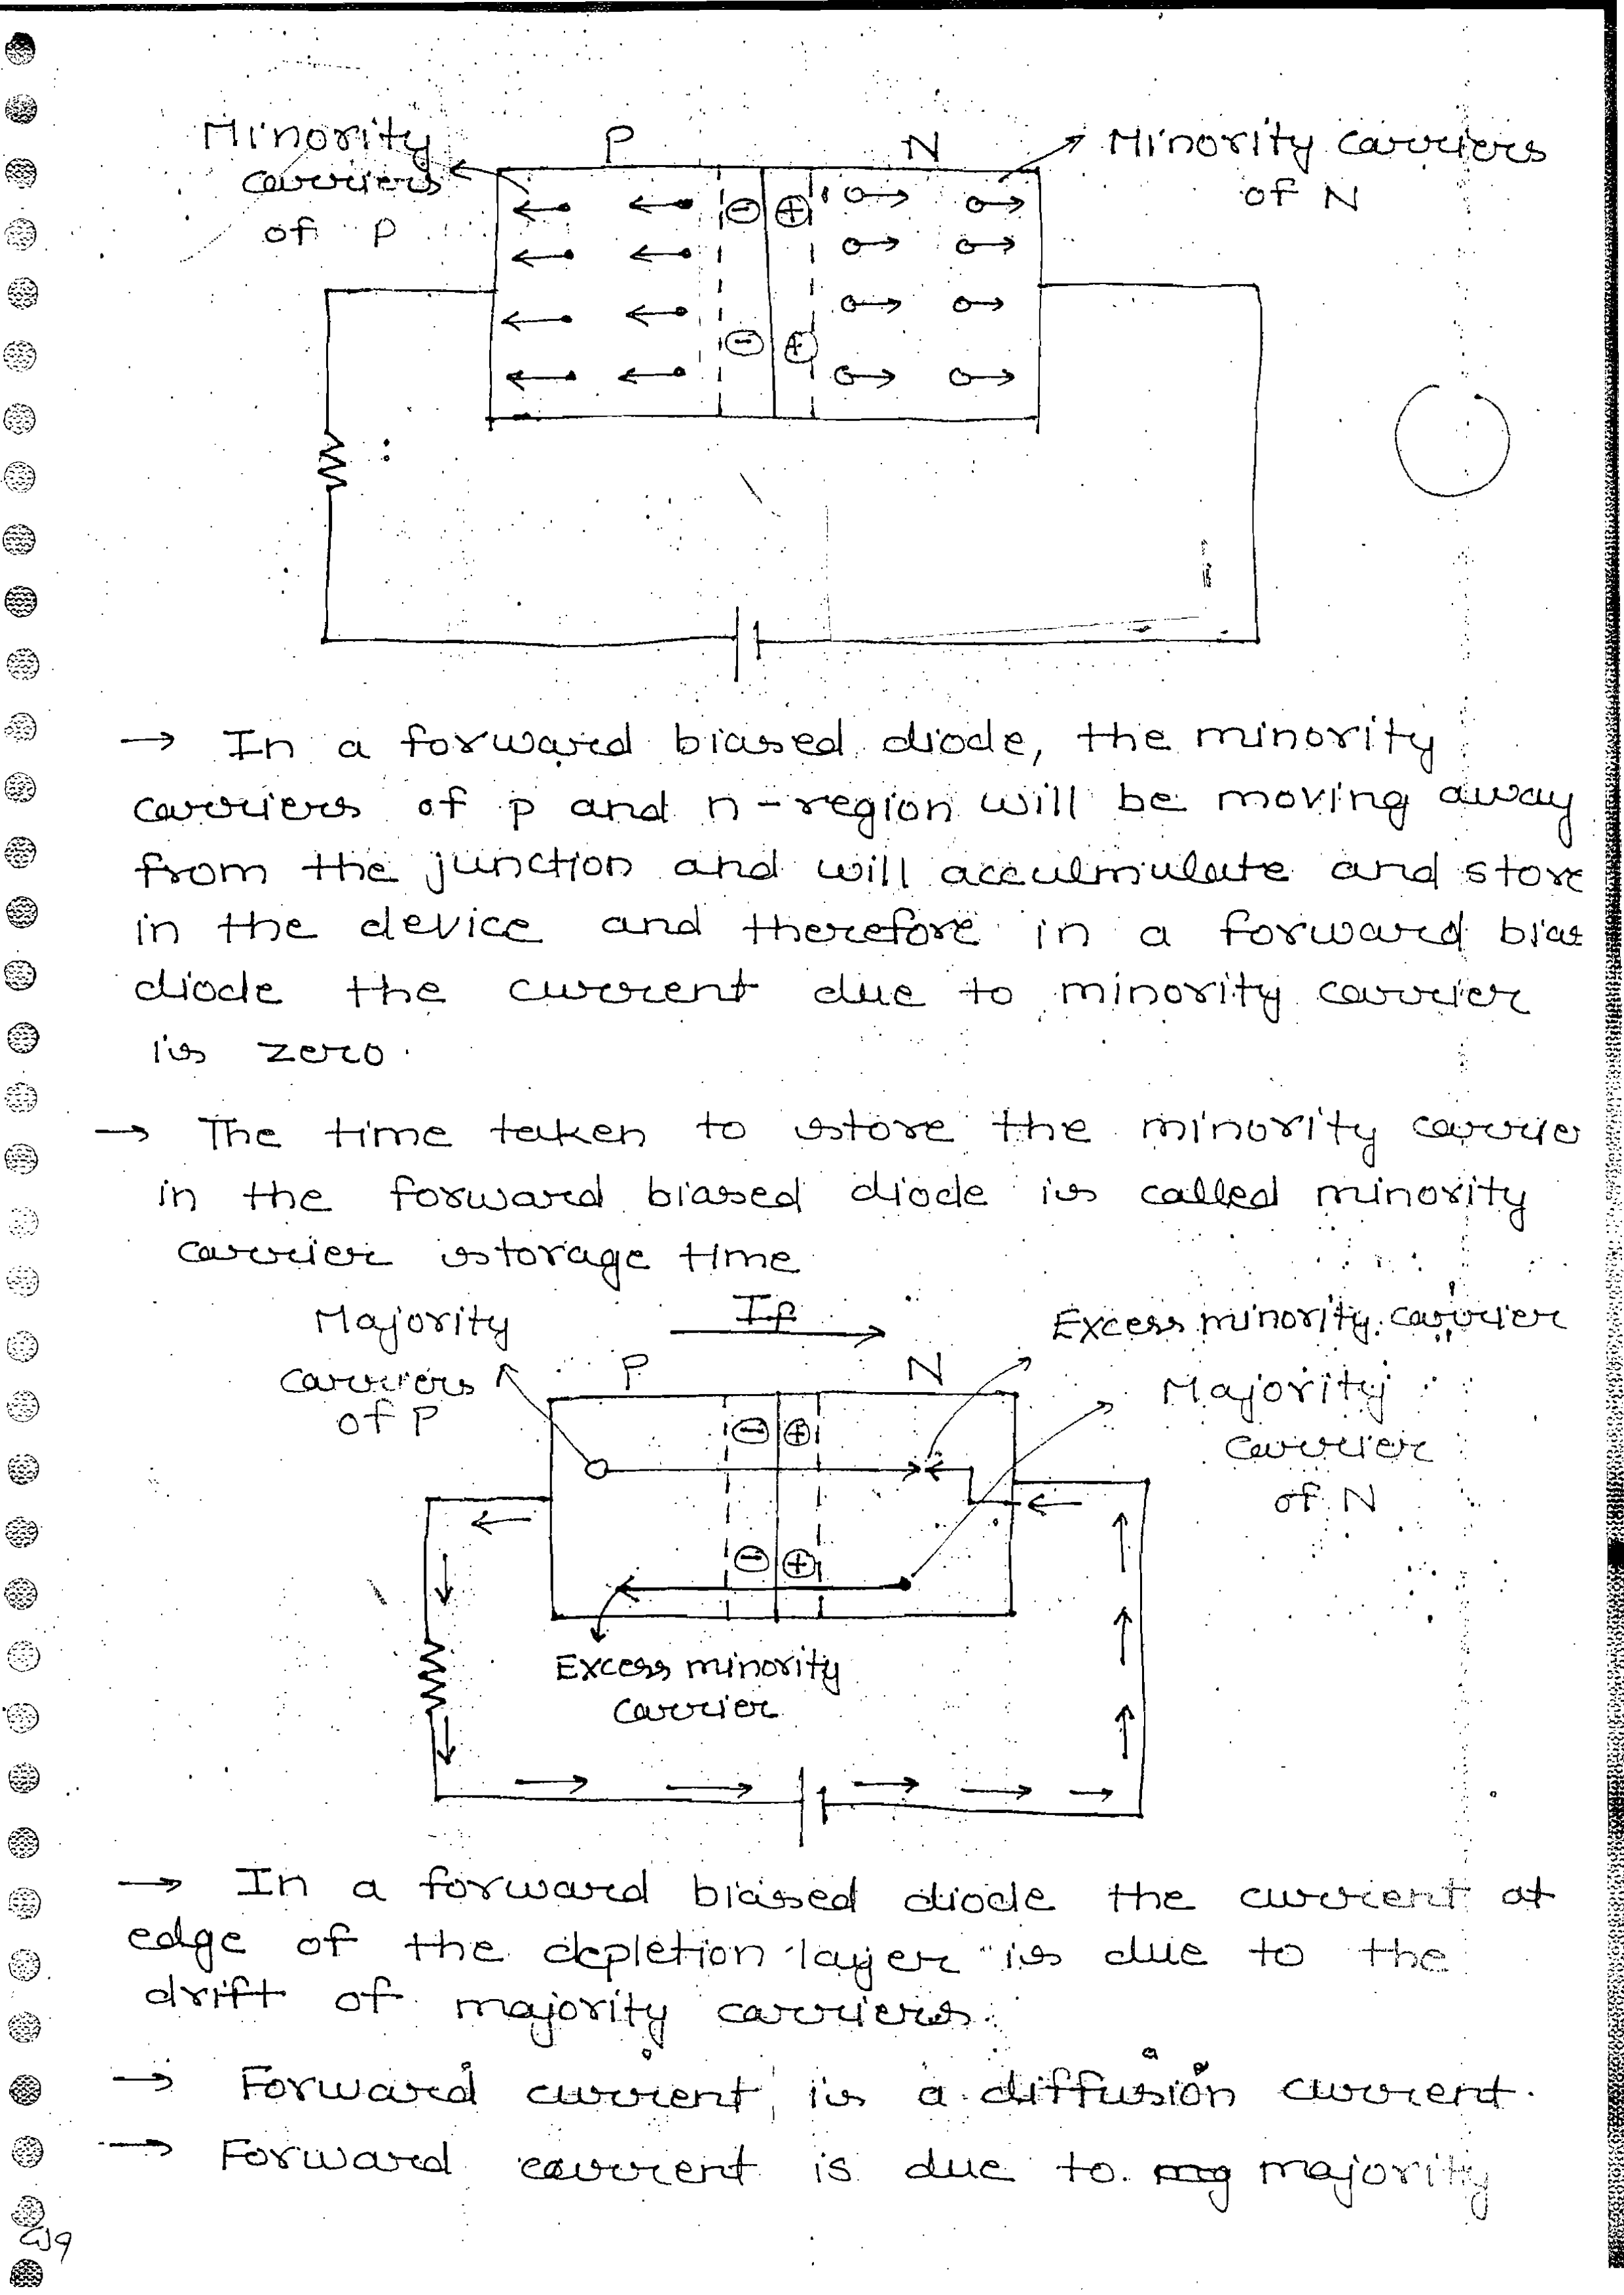 Minority
carriers
of P
P
N
Minority carriers
of N
→ In a forward biased diode, the minority
carriers of p and n-region will be moving away
from the junction and will acculmulate and store
in the device and therefore in a forward bias
diode the current due to minority carrier
is zero.
→ The time taken to store the minority carrie
in the forward biased diode is called minority
carrier storage time
Majority
carriers
of P
If
P
N
Excess minority carrier
Majority
carrier
of N
Excess minority
carrier
→ In a forward biased diode the current at
edge of the depletion layer is due to the
drift of majority carriers.
→ Forward current is a diffusion current.
→ Forward current is due to majority